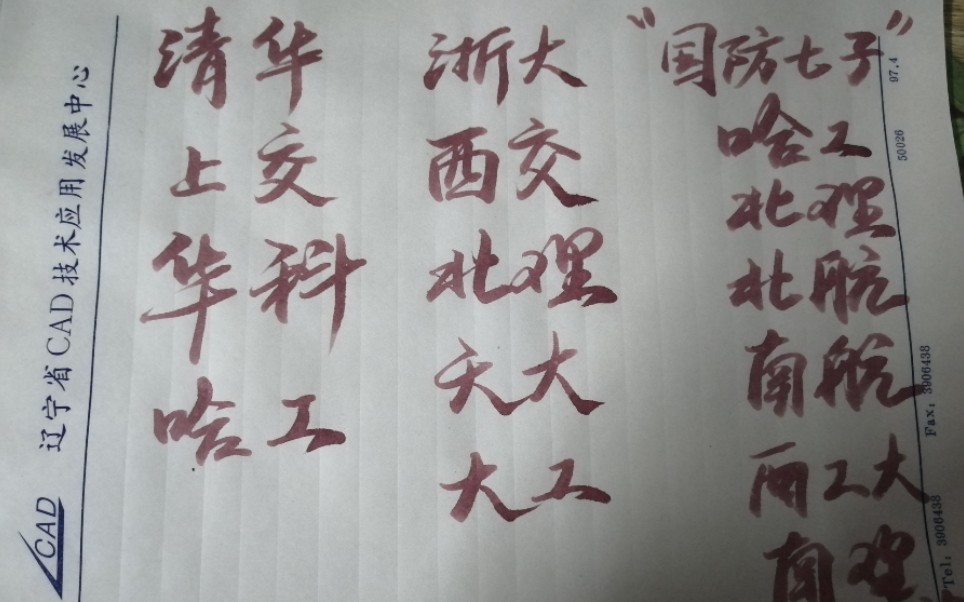 清华
上交
华科
哈工
浙大
西交
北理
天大
大工
“国防七子”
哈工
北理
北航
南航
西工大
南理
辽宁省CAD技术应用发展中心
CAD
97.4
50026
Fax: 3906438
Tel: 3906438